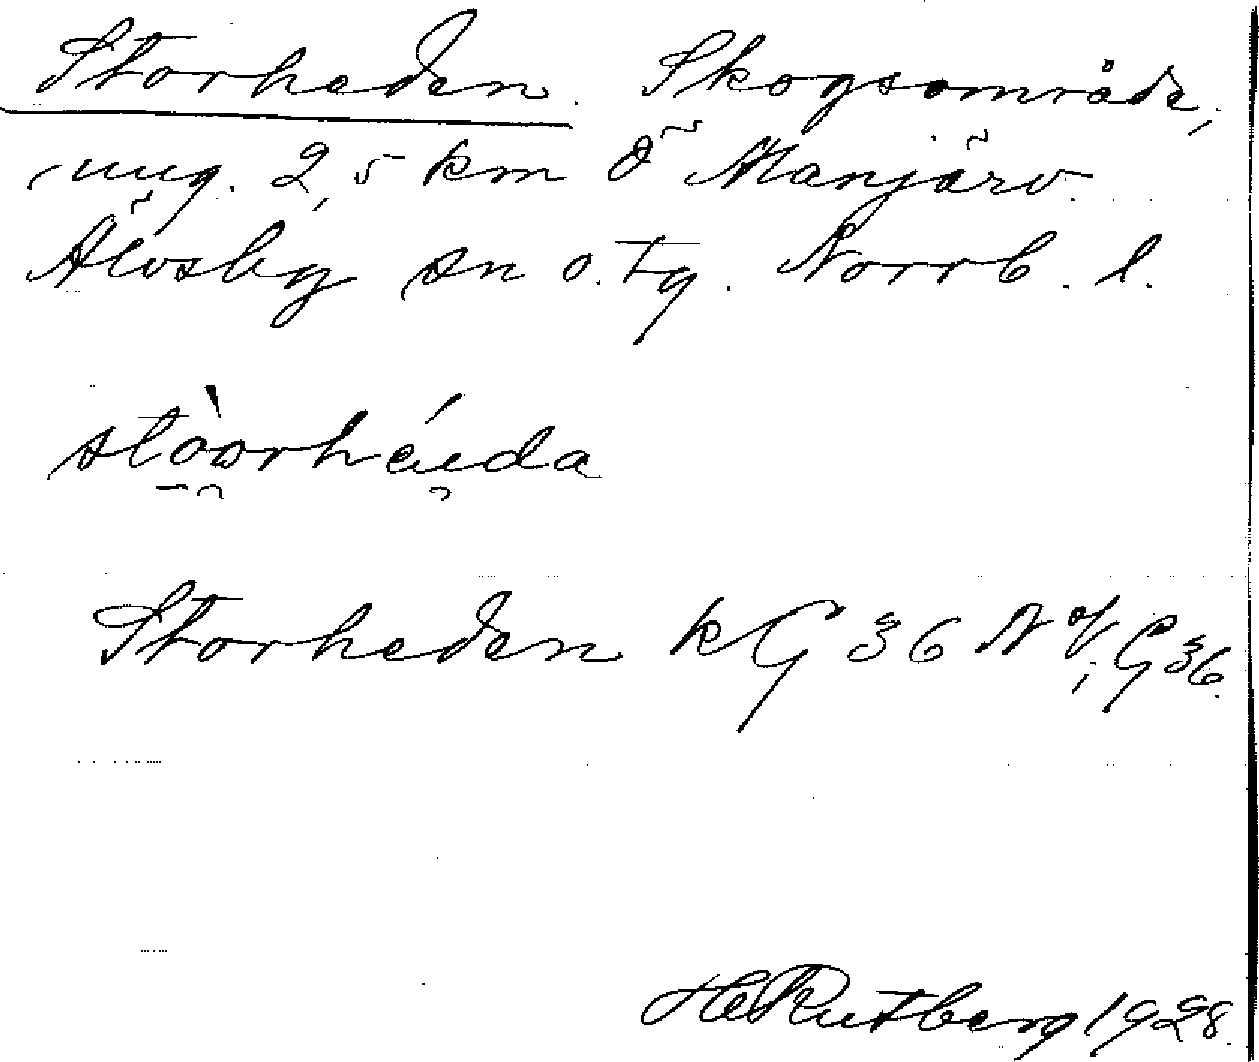 Storheden. Skogsområde,
ung. 2,5 km Ö Manjärv.
Älvsby sn o. tg. Norrb. l.
Storheden k G 36 N
H Rutberg 1928.